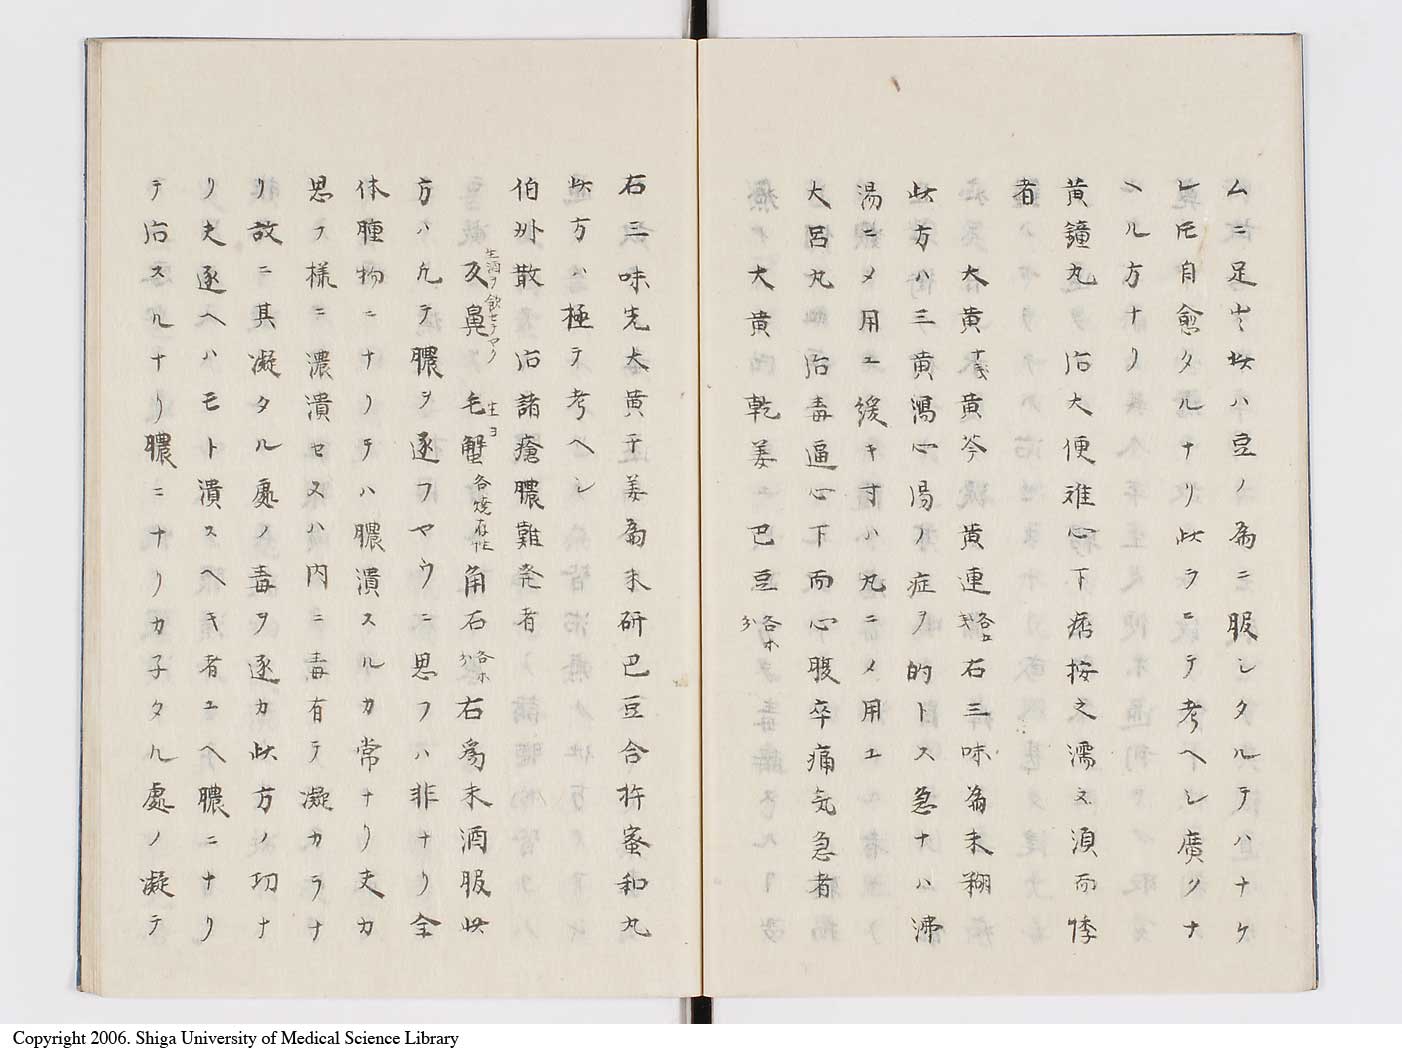 ムニ足ラス此ハ豆ノ為ニ服シタルテハナケ
レ𪜈自愈タルナリ此ラニテ考ヘシ廣クナ
ヘル方ナリ
黄鐘丸 治大便難心下痞按之濡又須而悸
者
大黄 十戔 黄芩 黄連 各五戔 右三味為末糊
此方ハ三黄瀉心湯ノ症ヲ的トス急ナハ沸
湯ニメ用ユ緩キ寸ハ丸ニメ用ユ
大呂丸 治毒逼心下而心腹卒痛気急者
大黄 乾姜 巴豆 各木分
右三味先大黄干姜為末研巴豆合杵蜜和丸
此方ハ極テ考ヘシ
伯州散 治諸瘡膿難発者
反鼻 生酒ヲ飲セテヤク 毛蟹 生ヨ 各焼存性 角石 各木分 右為末酒服此
方ハ凡テ膿ヲ逐フヤウニ思フハ非ナリ全
体腫物ニナリテハ膿潰スルカ常ナリ夫カ
思フ様ニ濃潰セスハ内ニ毒有テ凝カラナ
リ故ニ其凝タル處ノ毒ヲ逐カ此方ノ功ナ
リ夫逐ヘハモト潰スヘキ者ユヘ膿ニナリ
テ治スルナリ膿ニナリカ子タル處ノ凝テ
Copyright 2006. Shiga University of Medical Science Library